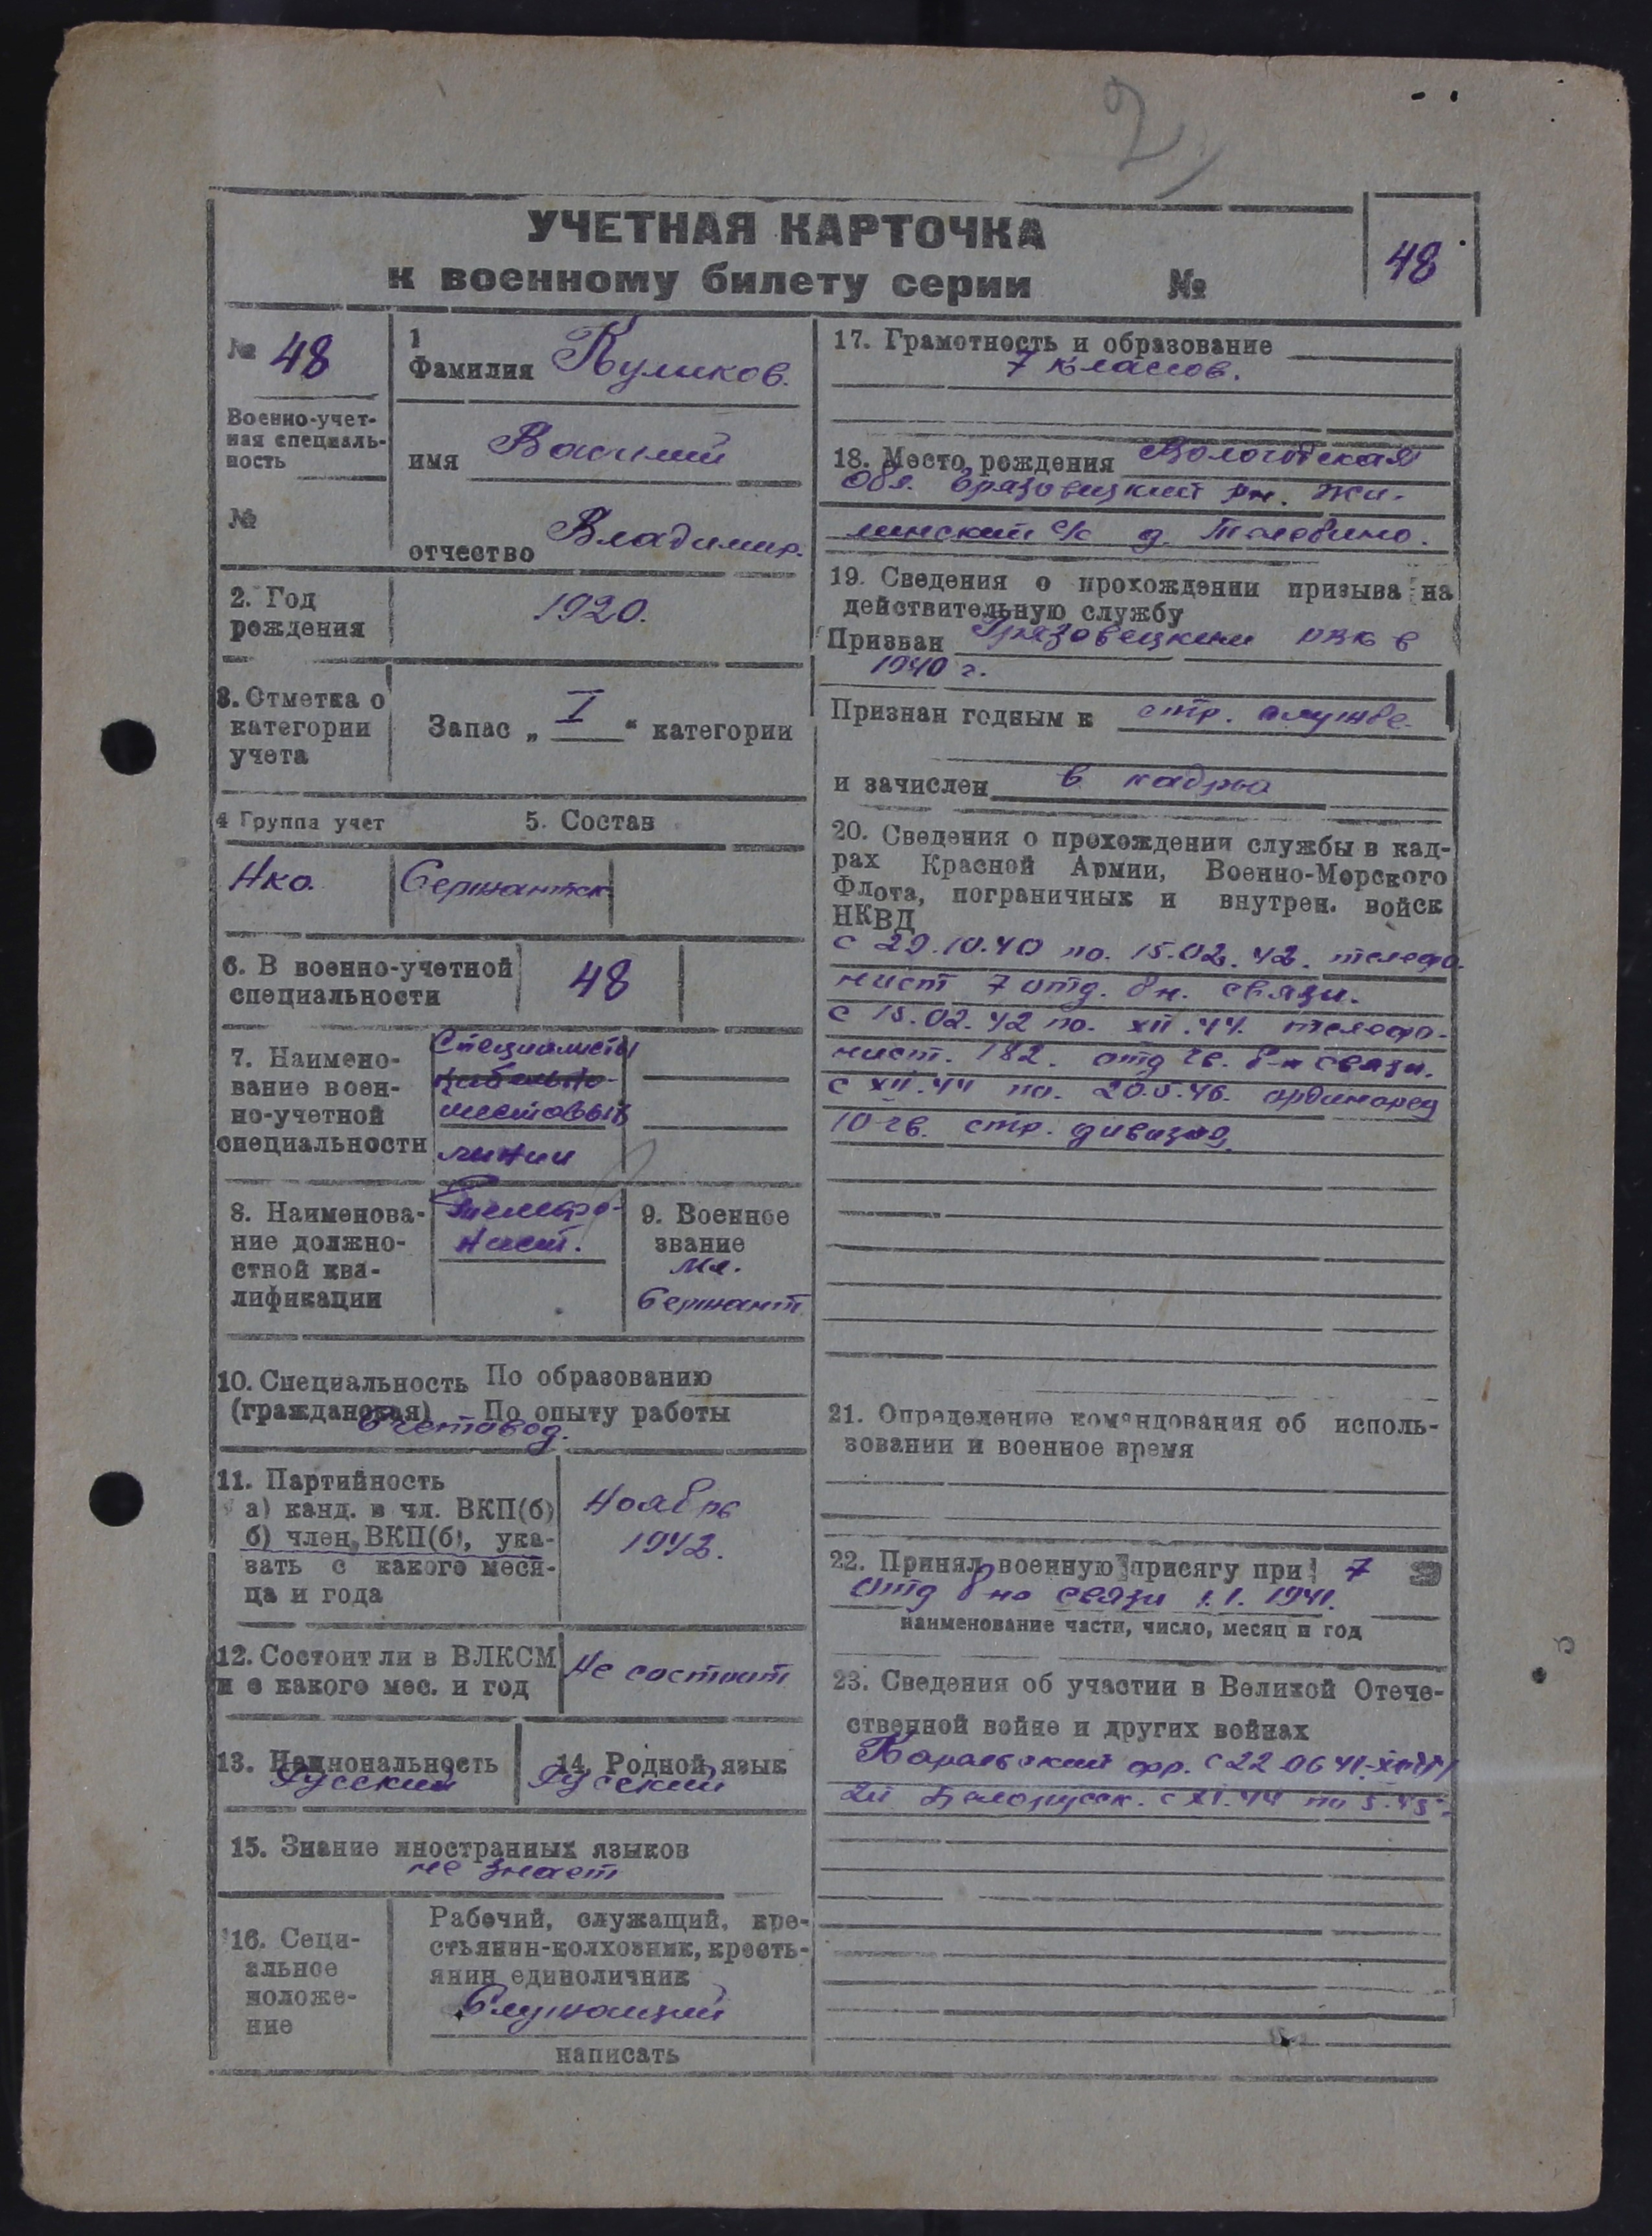 2
УЧЕТНАЯ КАРТОЧКА
к военному билету серии №
48
№ 48
Военно-учет-
ная специаль-
ность
№
1
Фамилия Куликов.
имя Василий
отчество Владимир.
2. Год
рождения
1920.
3. Отметка о
категории
учета
Запас „ I “ категории
4 Группа учет
5. Состав
Нко.
Сержантск
6. В военно-учетной
специальности
48
7. Наимено-
вание воен-
но-учетной
специальности
Специалисты
кабельно-
шестовых
линии
8. Наименова-
ние должно-
стной ква-
лификации
Телефо-
нист.
9. Военное
звание
Мл.
Сержант
10. Специальность По образованию
(гражданская) По опыту работы
Счетовод.
11. Партийность
а) канд. в чл. ВКП(б)
б) член ВКП(б), ука-
зать с какого меся-
ца и года
Ноябрь
1942.
12. Состоит ли в ВЛКСМ
и с какого мес. и год
Не состоит
13. Национальность
Русский
14. Родной язык
Русский
15. Знание иностранных языков
не знает
16. Соци-
альное
положе-
ние
Рабочий, служащий, кре-
стьянин-колхозник, кресть-
янин единоличник
Служащий
написать
17. Грамотность и образование
7 классов.
18. Место рождения Вологодская
обл. Грязовецкий рн. Жи-
линский с/с д.
19. Сведения о прохождении призыва на
действительную службу
Призван Грязовецким РВК в
1940 г.
Признан годным к стр. службе
и зачислен в кадры
20. Сведения о прохождении службы в кад-
рах Красной Армии, Военно-Морского
Флота, пограничных и внутрен. войск
НКВД
с 29.10.40 по. 15.02.42. телефо-
нист 7 отд. бн. связи.
с 15.02.42 по. XII.44. телефо-
нист. 182. отд гв. б-н связи.
с XII.44 по. 20.5.46. ординарец
10 гв. стр. дивизия.
21. Определение командования об исполь-
зовании и военное время
22. Принял военную присягу при 7
отд бно связи 1.1.1941.
наименование части, число, месяц и год
23. Сведения об участии в Великой Отече-
ственной войне и других войнах
Карельский фр. с 22 06 41-
2й Белорусск. с XI.44 по 5.45